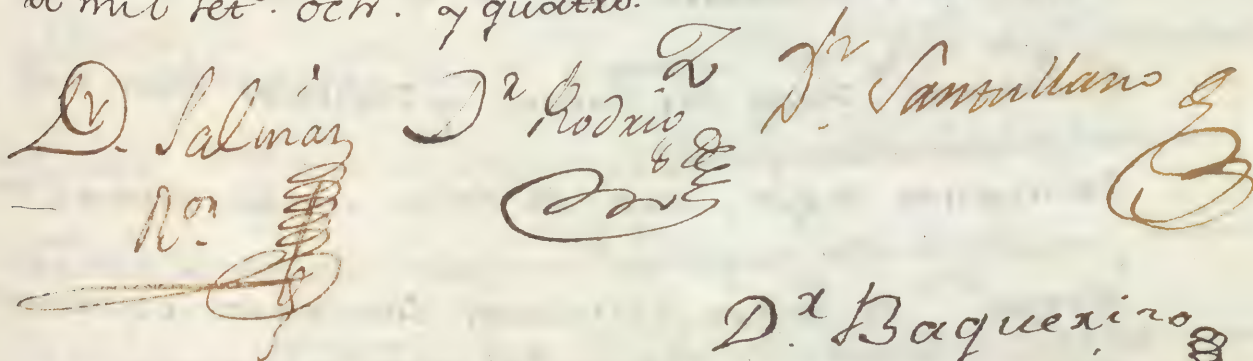 de mil set. och. y quatro.
Dr. Salinas Dr Rodrig z Dr. Santullano
Ror.
Dr. Baquerizo